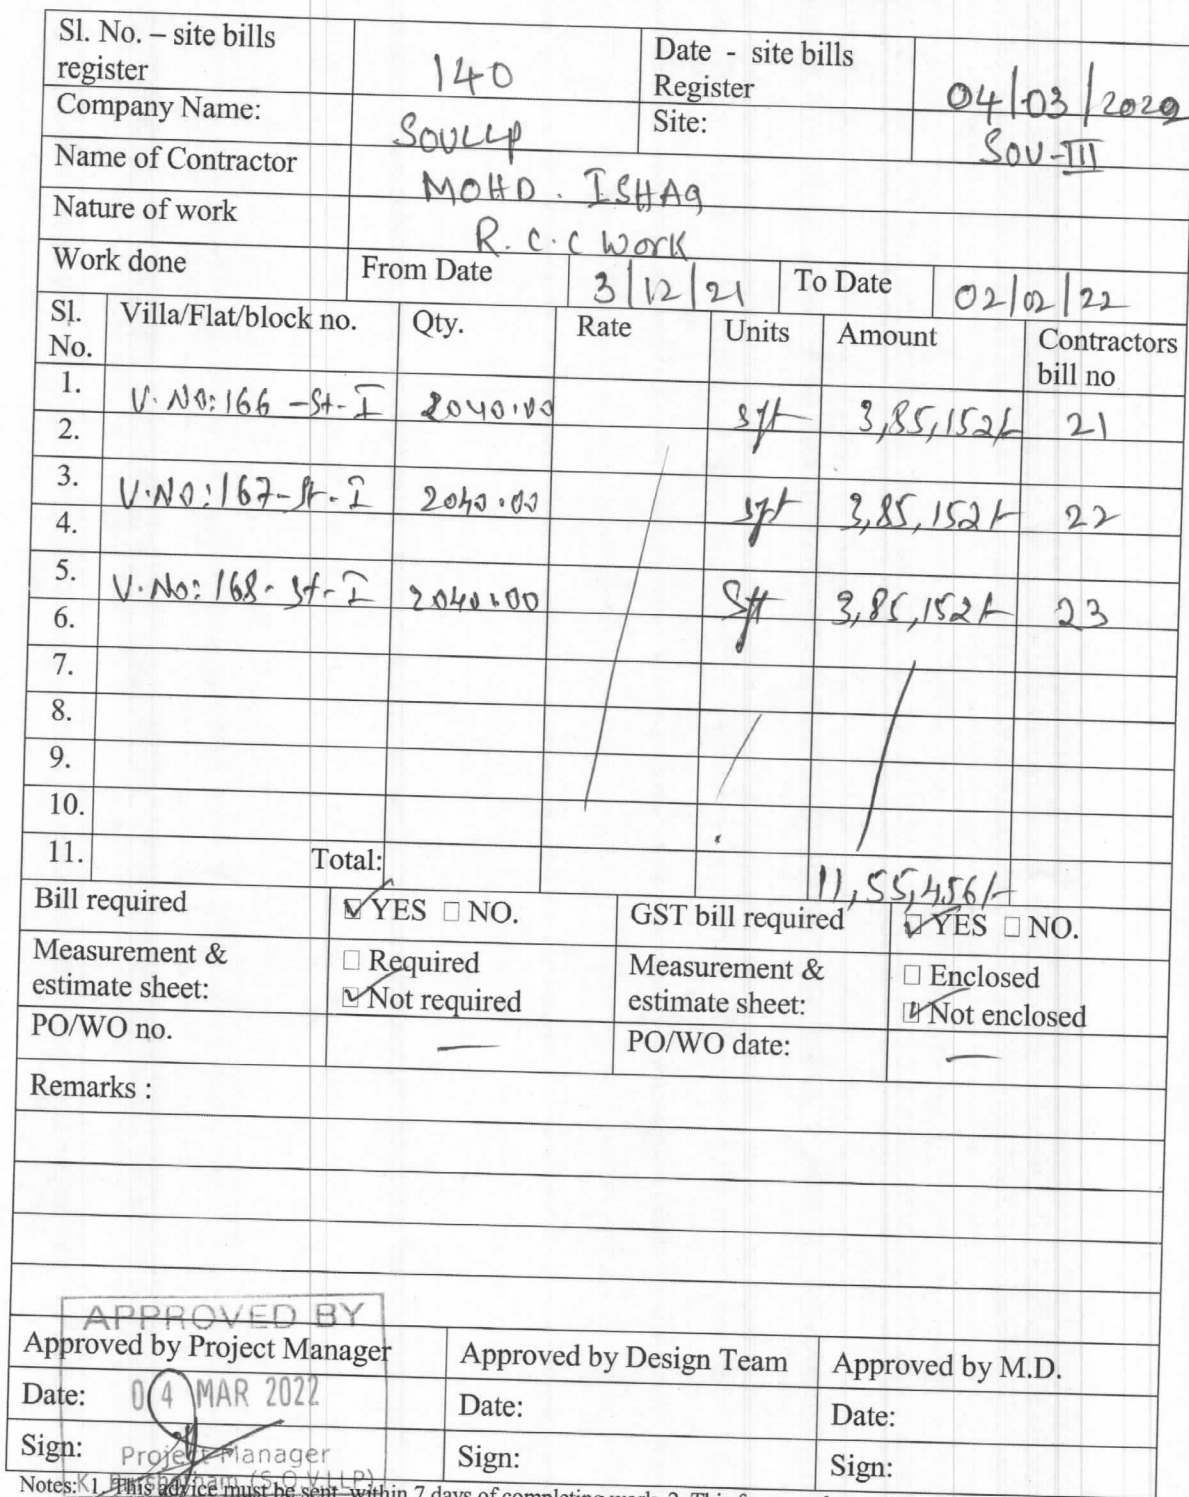 Sl. No. – site bills register 140 Date - site bills Register 04/03/2022
Company Name: SOVLLP Site: SOV-III
Name of Contractor MOHD. ISHAQ
Nature of work R.C.C Work
Work done From Date 3/12/21 To Date 02/02/22
Sl. No. Villa/Flat/block no. Qty. Rate Units Amount Contractors bill no
1. V.No:166-St-I 2040.00 sft 3,85,152/- 21
2.
3. V.No:167-St-I 2040.00 sft 3,85,152/- 22
4.
5. V.No:168-St-I 2040.00 Sft 3,85,152/- 23
6.
7.
8.
9.
10.
11. Total: 11,55,456/-
Bill required ☑ YES □ NO. GST bill required ☑ YES □ NO.
Measurement & estimate sheet: □ Required ☑ Not required Measurement & estimate sheet: □ Enclosed ☑ Not enclosed
PO/WO no. — PO/WO date: —
Remarks :
APPROVED BY
Approved by Project Manager Approved by Design Team Approved by M.D.
Date: 04 MAR 2022 Date: Date:
Sign: Project Manager Sign: Sign:
(S.O.V.LLP)
Notes: 1. This advice must be sent within 7 days of completing work. 2. This